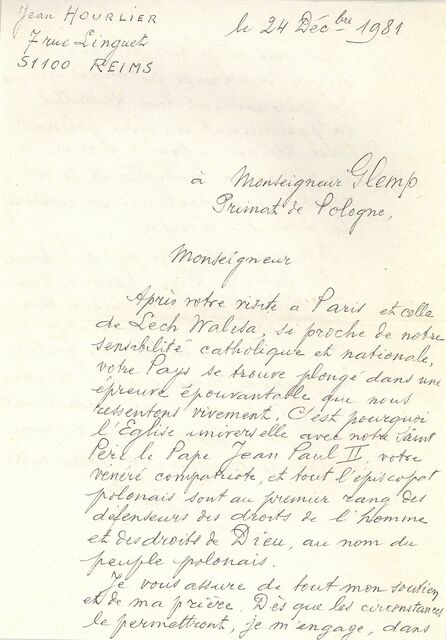 Jean HOURLIER
7 rue Linguet
51100 REIMS
le 24 Déc.bre 1981
à Monseigneur Glemp,
Primat de Pologne,
Monseigneur
Après votre visite à Paris et celle
de Lech Walesa, si proche de notre
sensibilité catholique et nationale,
votre Pays se trouve plongé dans une
épreuve épouvantable que nous
ressentons vivement. C'est pourquoi
l'Eglise universelle avec notre Saint
Père le Pape Jean Paul II, votre
vénéré compatriote, et tout l'épiscopat
polonais sont au premier rang des
défenseurs des droits de l'homme
et des droits de Dieu, au nom du
peuple polonais.
Je vous assure de tout mon soutien
et de ma prière. Dès que les circonstances
le permettront, je m'engage, dans